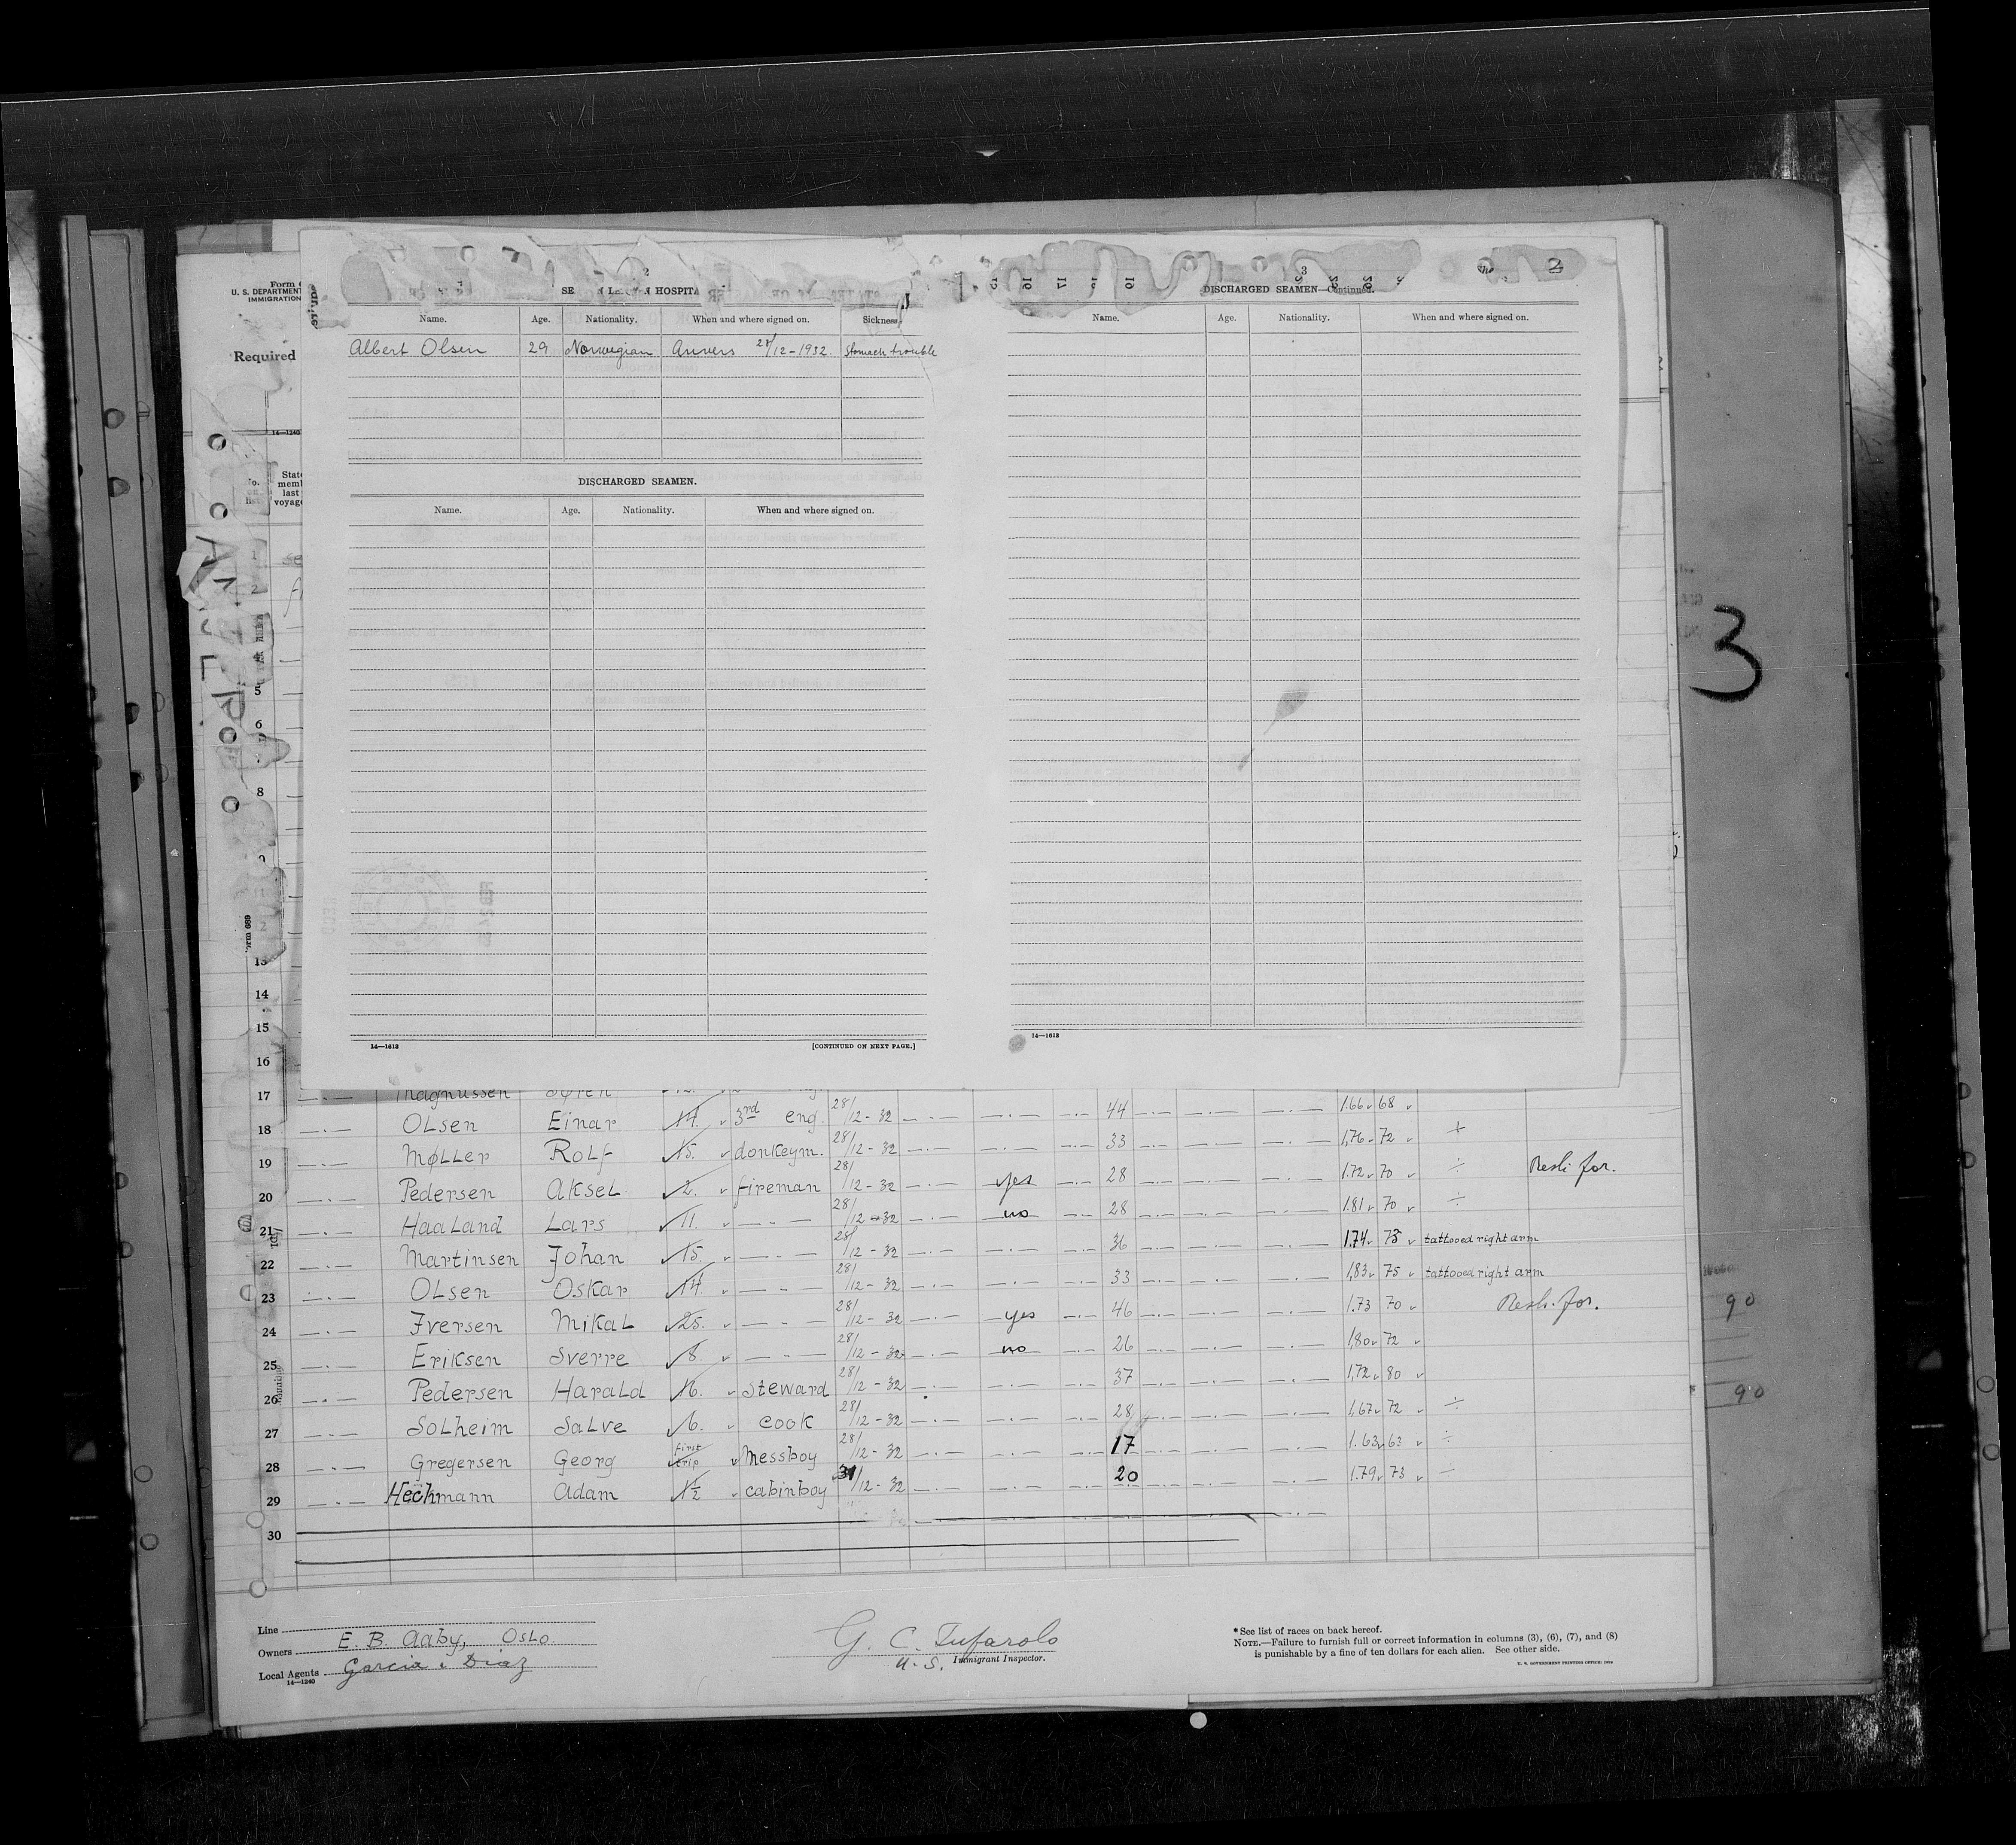 Form
U. S. DEPARTMENT
IMMIGRATION
Required
14—1240
No. on list
State
memb
last
voyage
HOSPITA
Name. Age. Nationality. When and where signed on. Sickness.
Albert Olsen 29 Norwegian Anvers 28/12-1932. Stomach trouble
DISCHARGED SEAMEN.
Name. Age. Nationality. When and where signed on.
14—1613 [CONTINUED ON NEXT PAGE.]
3
DISCHARGED SEAMEN—Continued.
Name. Age. Nationality. When and where signed on.
14—1613
3
1
2
5
6
8
13
14
15
16
17 —.— Magnussen Søren
18 —.— Olsen Einar 14. 3rd eng. 28/12-32 —.— —.— —.— 44 —.— —.— —.— 1.66 68
19 —.— Møller Rolf 15. donkeym. 28/12-32 —.— —.— —.— 33 —.— —.— —.— 1,76 72 +
20 —.— Pedersen Aksel 2. fireman 28/12-32 —.— yes —.— 28 —.— —.— —.— 1.72 70 ÷
21 —.— Haaland Lars 11. —.— 28/12-32 —.— no —.— 28 —.— —.— —.— 1.81 70 ÷
22 —.— Martinsen Johan 15. —.— 28/12-32 —.— —.— —.— 36 —.— —.— —.— 1.74 73 tattooed right arm
23 —.— Olsen Oskar 14 —.— 28/12-32 —.— —.— —.— 33 —.— —.— —.— 1,83 75 tattooed right arm
24 —.— Iversen Mikal 25. —.— 28/12-32 —.— yes —.— 46 —.— —.— —.— 1.73 70
25 —.— Eriksen Sverre 8 —.— 28/12-32 —.— no —.— 26 —.— —.— —.— 1,80 72
26 —.— Pedersen Harald 16. steward 28/12-32 —.— —.— —.— 37 —.— —.— —.— 1,72 80
27 —.— Solheim Salve 6. cook 28/12-32 —.— —.— —.— 28 —.— —.— —.— 1,67 72 ÷
28 —.— Gregersen Georg first trip Messboy 28/12-32 —.— —.— —.— 17 —.— —.— —.— 1.63 63 ÷
29 —.— Hechmann Adam 1½ cabinboy 31/12-32 —.— —.— —.— 20 —.— —.— —.— 1.79 73 ÷
30
90
90
Line
Owners E. B. Aaby, Oslo.
Local Agents Garcia & Diaz
14—1240
G. C. Tufarolo
U. S. Immigrant Inspector.
*See list of races on back hereof.
NOTE.—Failure to furnish full or correct information in columns (3), (6), (7), and (8)
is punishable by a fine of ten dollars for each alien. See other side.